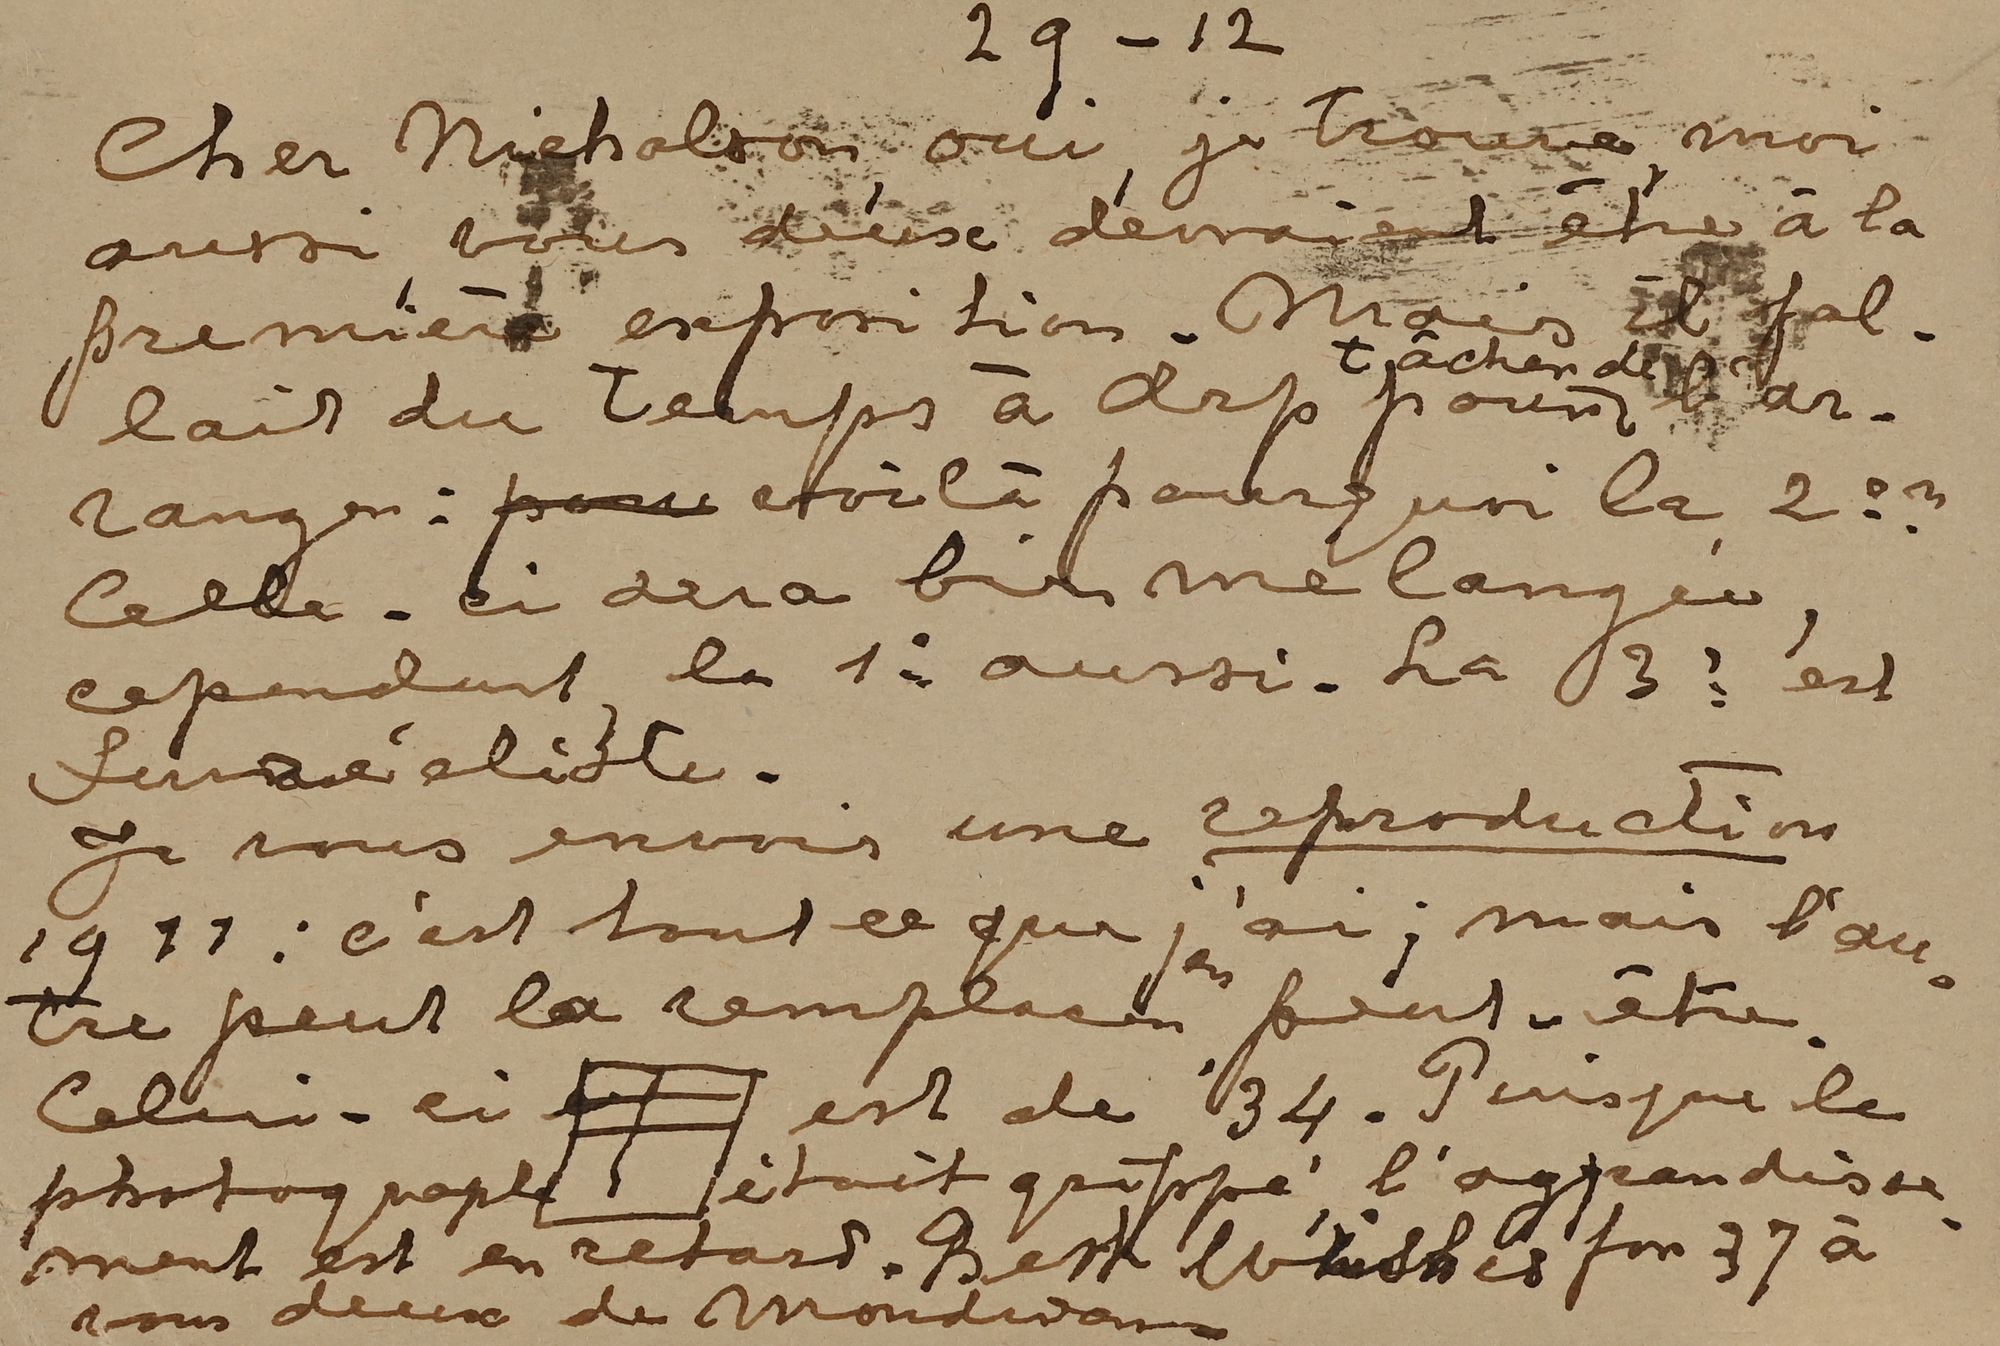 29-12
Cher Nicholson oui, je trouve, moi
aussi vous deux devraient être à la
première exposition. Mais il fal-
lait du temps à Arp pour tâcher de l'ar-
ranger: pour voilà pourquoi la 2e?
Celle-ci sera bien mélangée,
cependant la 1e aussi. La 3e est
Surréaliste.
Je vous envois une reproduction
1911: c'est tout ce que j'ai; mais l'au-
tre peut la remplacer en peut-être.
Celui-ci est de '34. Puisque le
photographe était grippé, l'agrandisse-
ment est en retard. Best Wishes for 37 à
vous deux de Mondrian